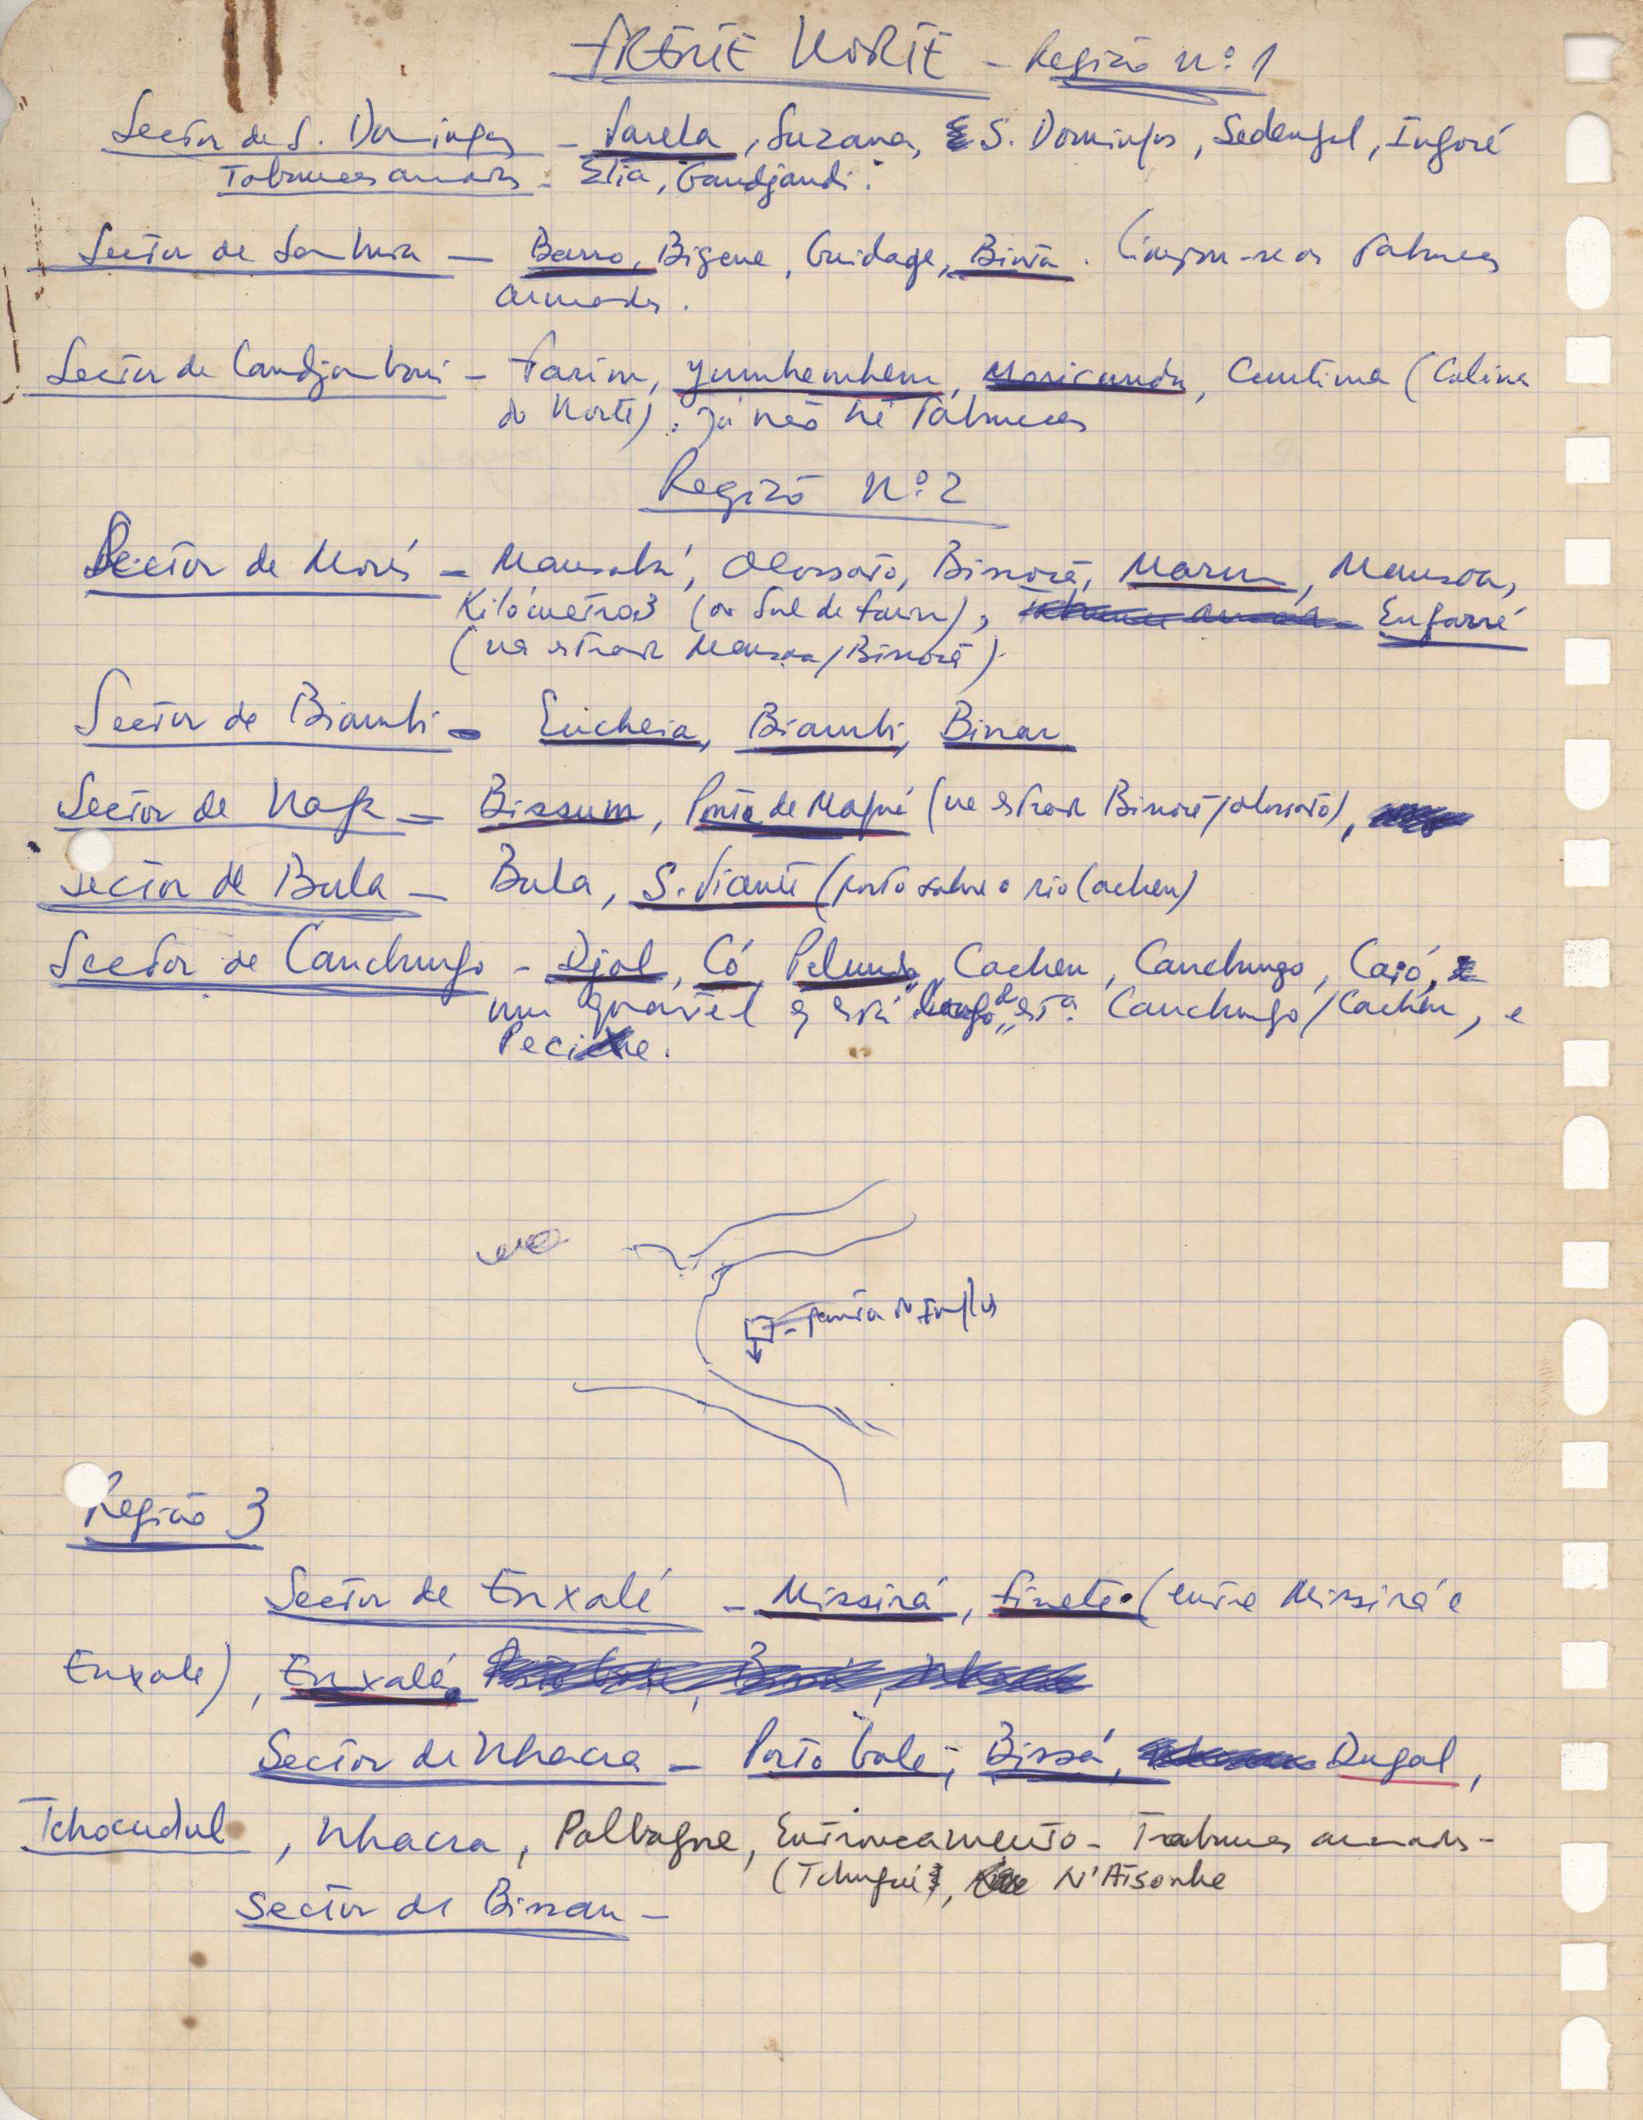 FRENTE NORTE - Região nº 1
Sector de S. Domingos - Varela, Suzana, S. Domingos, Sedengal, Ingoré
Tabancas armadas - Elia, Gandjandi.
Sector de Sambuia - Barro, Bigene, Guidage, Binta. Limpou-se as tabancas
armadas.
Sector de Candjambari - Farim, Jumbembem, Cuntima (Colina
do Norte). Já não há tabancas
Região nº 2
Sector de Morés - Mansabá, Olossato, Bissorã, Mansoa,
Kilómetro 3 (ao sul de Farim), Enfarré
(na estrada Mansoa/Bissorã).
Sector de Biambi - Encheia, Biambi, Binar
Sector de Naga - Bissum, Ponte de Maqué (na estrada Bissorã/Olossato),
Sector de Bula - Bula, S. Vicente (porto sobre o rio Cacheu)
Sector de Canchungo - Djol, Có, Pelundo, Cacheu, Canchungo, Caió,
um quartel q está estª Canchungo/Cacheu, e
Pecixe.
ponta do Inglês
Região 3
Sector de Enxalé - Missirá, Finete (entre Missirá e
Enxalé), Enxalé
Sector de Nhacra - Porto Gole, Bissá, Dugal,
Tchocudul, Nhacra, Entroncamento - Tabancas armadas -
(Tchugué,
Sector de Bissau -